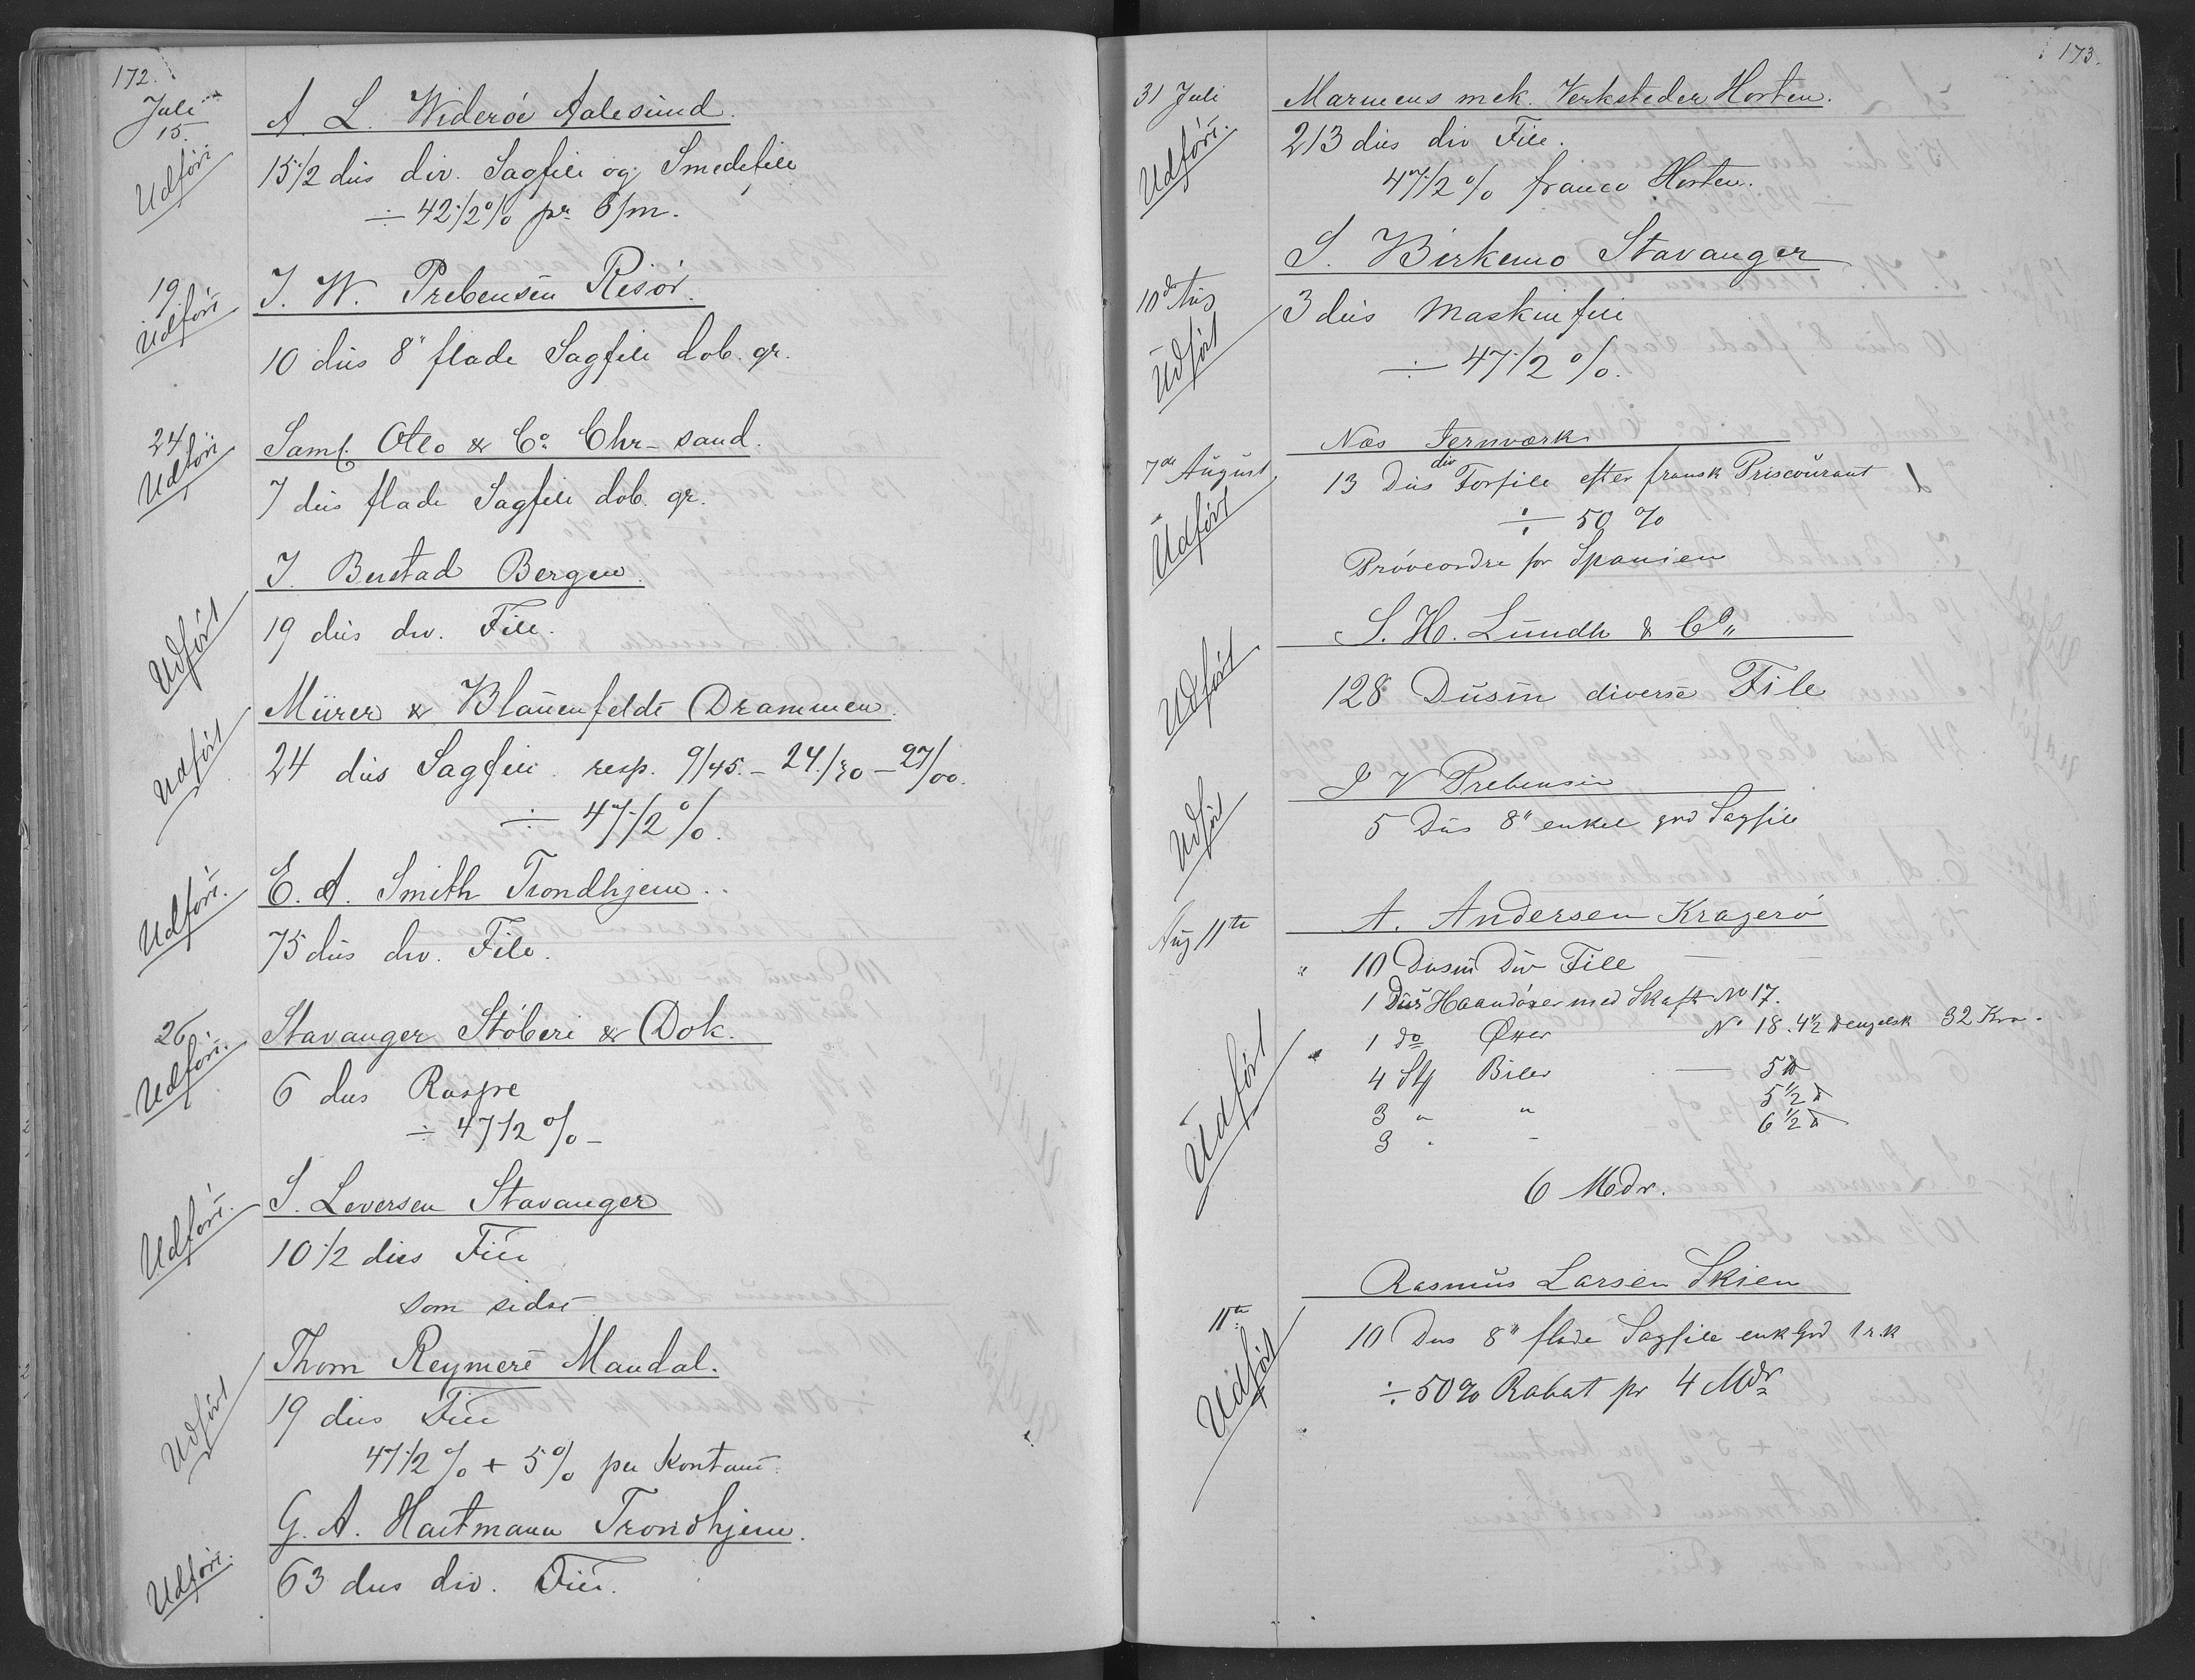 172.
Juli
15.
A. L. Widerøe Aalesund.
Udført
15 1/2 dus div. Sagfile og Smedefile
÷ 42 1/2 % pr 6/m.
19.
J. W. Prebensen Risør.
Udført
10 dus 8" flade Sagfile dob. gr.
24
Saml. Otto & Co Chr-sand.
Udført
7 dus flade Sagfile dob. gr.
J. Bustad Bergen.
Udført
19 dus div. File.
Mürer & Blauenfeldt Drammen.
Udført
24 dus Sagfile resp. 9/45. - 24/30 - 27/00.
÷ 47 1/2 %.
E. A. Smith Trondhjem.
Udført.
75 dus div. File.
26
Stavanger Støberi & Dok.
Udført.
6 dus Raspe
÷ 47 1/2 % -
S. Leversen Stavanger
Udført.
10 1/2 dus File
som sidst
Thom Reymert Mandal.
Udført
19 dus File
47 1/2 % + 5 % per Kontant.
G. A. Hartmann Trondhjem.
Udført.
63 dus div. File.
173.
31 Juli
Marinens mek. Verksteder Horten.
Udført.
213 dus div File.
47 1/2 % franco Horten.
S. Birkemo Stavanger
10de Aug
3 dus Maskinfile
Udført
÷ 47 1/2 %.
Næs Jernværk
7de August
13 Dus div Torfile efter fransk Priscourant
Udført
÷ 50 %
Prøveordre for Spanien
S. H. Lundh & Co
Udført
128 Dusin diverse File
J V Prebensen
Udført
5 Dus 8" enkel grd Sagfile
Aug 11te
A. Andersen Kragerø
" 10 Dusin Div File
1 Dus Haandøxer med Skaft No 17.
1 do Øxer No 18. 4 1/2 engelsk 32 Kr.
Udført
4 St Biler 5
3 " " 5 1/2
3 " - 6 1/2
6 Mdr.
Rasmus Larsen Skien
11te
Udført
10 Dus 8" flade Sagfile enk Grd 1 r.k
÷ 50 % Rabat pr 4 Mdr